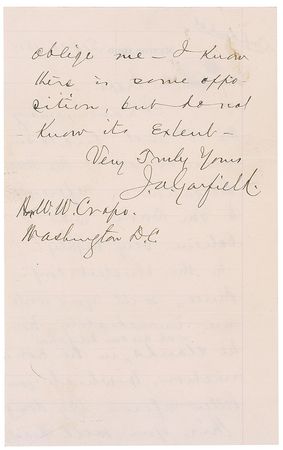 oblige me – I know
there is some oppo
sition, but do not
know its Extent –
Very Truly Yours
J. A. Garfield.
Hon W. W. Crapo.
Washington D.C.